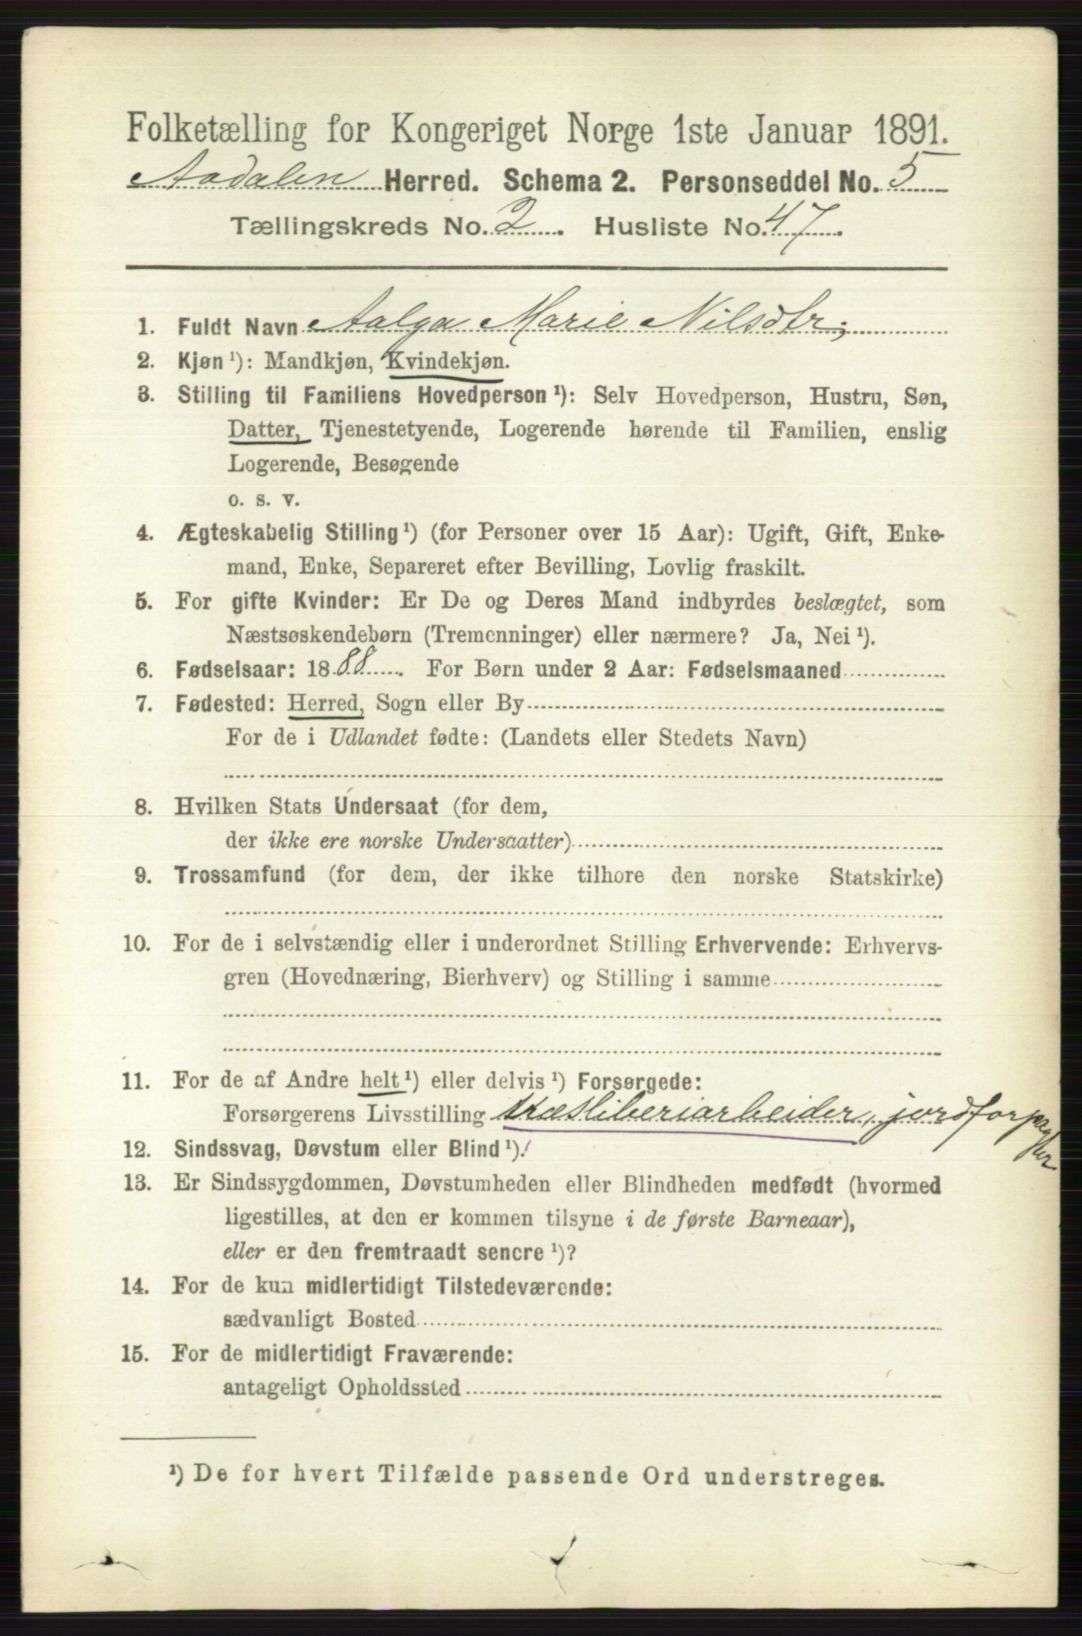 Folketælling for Kongeriget Norge 1ste Januar 1891.
Aadalen Herred. Schema 2. Personseddel No. 5
Tællingskreds No. 2. Husliste No. 47.
1. Fuldt Navn Aalga Marie Nilsdtr;
2. Kjøn ¹): Mandkjøn, Kvindekjøn.
3. Stilling til Familiens Hovedperson ¹): Selv Hovedperson, Hustru, Søn,
Datter, Tjenestetyende, Logerende hørende til Familien, enslig
Logerende, Besøgende
o. s. v.
4. Ægteskabelig Stilling ¹) (for Personer over 15 Aar): Ugift, Gift, Enke-
mand, Enke, Separeret efter Bevilling, Lovlig fraskilt.
5. For gifte Kvinder: Er De og Deres Mand indbyrdes beslægtet, som
Næstsøskendebørn (Tremenninger) eller nærmere? Ja, Nei ¹).
6. Fødselsaar: 1888. For Børn under 2 Aar: Fødselsmaaned
7. Fødested: Herred, Sogn eller By
For de i Udlandet fødte: (Landets eller Stedets Navn)
8. Hvilken Stats Undersaat (for dem,
der ikke ere norske Undersaatter)
9. Trossamfund (for dem, der ikke tilhore den norske Statskirke)
10. For de i selvstændig eller i underordnet Stilling Erhvervende: Erhvervs-
gren (Hovednæring, Bierhverv) og Stilling i samme
11. For de af Andre helt ¹) eller delvis ¹) Forsørgede:
Forsørgerens Livsstilling træsliberiarbeider, jordforpagter
12. Sindssvag, Døvstum eller Blind ¹).
13. Er Sindssygdommen, Døvstumheden eller Blindheden medfødt (hvormed
ligestilles, at den er kommen tilsyne i de første Barneaar),
eller er den fremtraadt senere ¹)?
14. For de kun midlertidigt Tilstedeværende:
sædvanligt Bosted
15. For de midlertidigt Fraværende:
antageligt Opholdssted
¹) De for hvert Tilfælde passende Ord understreges.